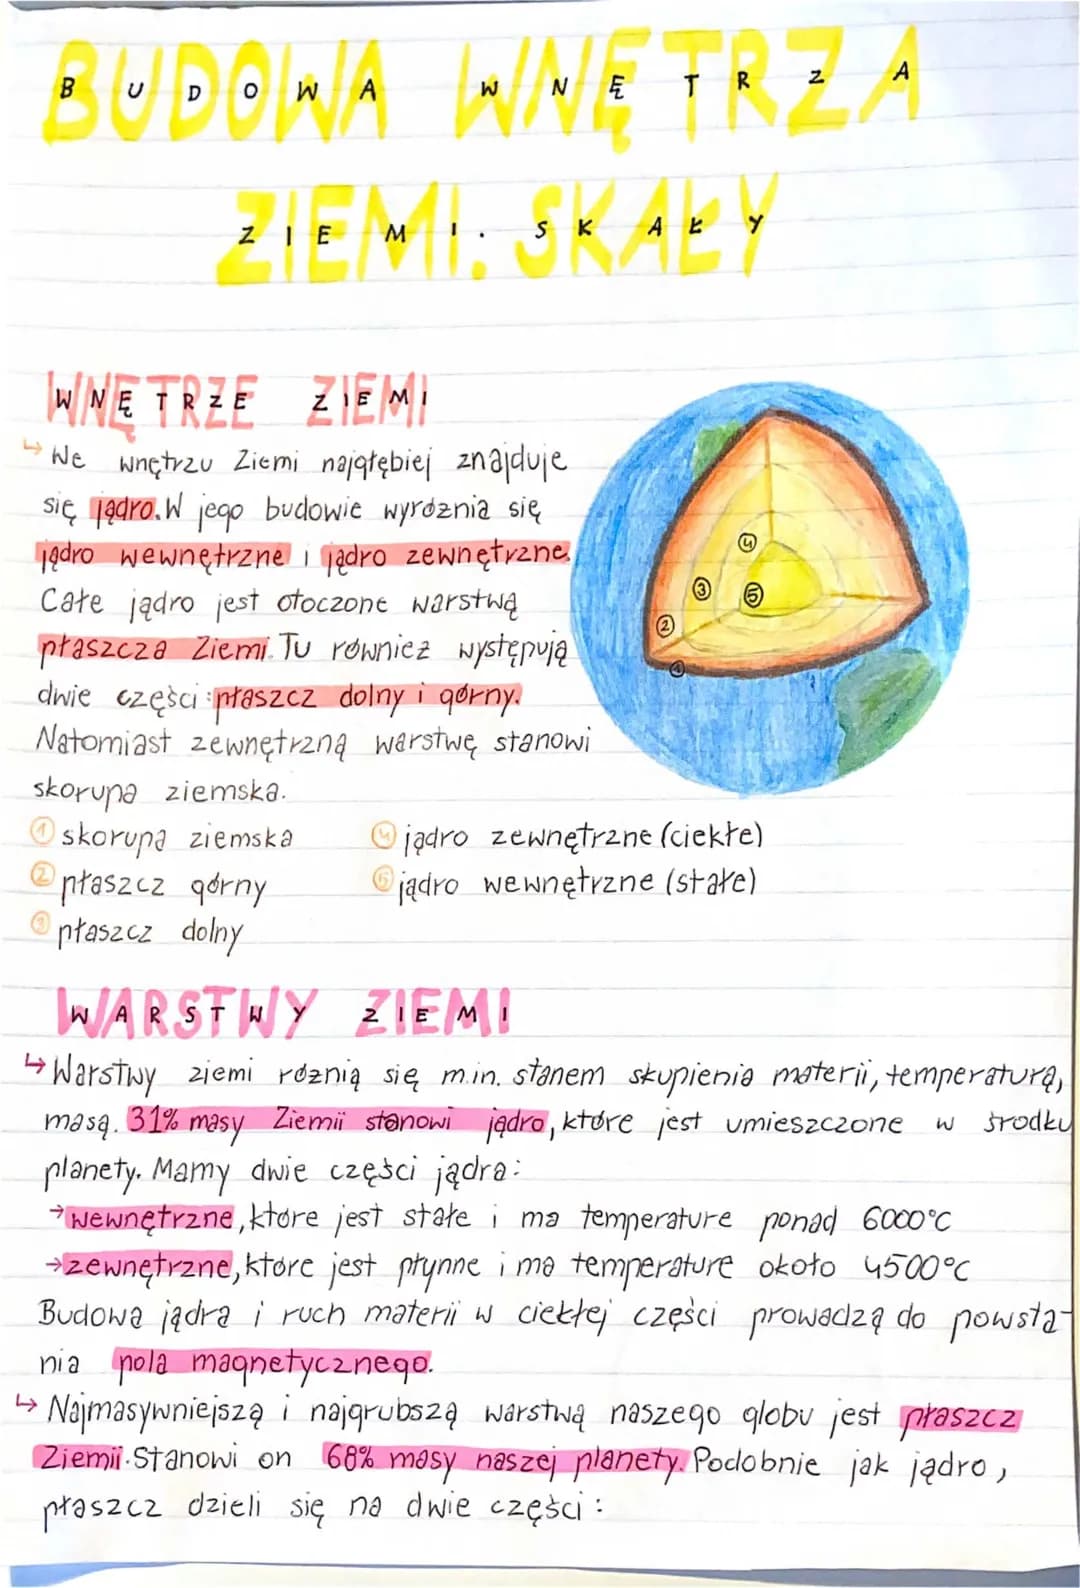 BUDOWA WNĘTRZA
ZIEMI. SKAŁY
WNĘTRZE ZIEMI
↳ We wnętrzu Ziemi najgłębiej znajduje
się jądro. W jego budowie wyróżnia się
jądro wewnętrzne i jądro zewnętrzne.
Całe jądro jest otoczone warstwą
płaszcza Ziemi. Tu również występują
dwie części: płaszcz dolny i górny.
Natomiast zewnętrzną warstwę stanowi
skorupa ziemska.
① skorupa ziemska
② płaszcz górny
③ płaszcz dolny
④ jądro zewnętrzne (ciekłe)
⑤ jądro wewnętrzne (stałe)
④
③
⑤
②
①
WARSTWY ZIEMI
↳ Warstwy ziemi różnią się m.in. stanem skupienia materii, temperaturą,
masą. 31% masy Ziemii stanowi jądro, które jest umieszczone w środku
planety. Mamy dwie części jądra:
→ wewnętrzne, które jest stałe i ma temperature ponad 6000°C
→ zewnętrzne, które jest płynne i ma temperature około 4500°C
Budowa jądra i ruch materii w ciekłej części prowadzą do powsta-
nia pola magnetycznego.
↳ Najmasywniejszą i najgrubszą warstwą naszego globu jest płaszcz
Ziemii. Stanowi on 68% masy naszej planety. Podobnie jak jądro,
płaszcz dzieli się na dwie części: